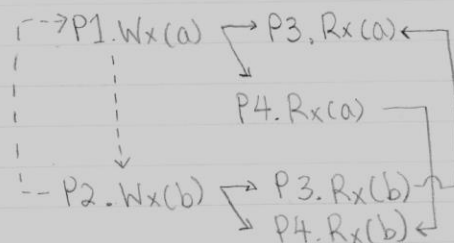 P1.Wx(a) P3.Rx(a)
P4.Rx(a)
P2.Wx(b) P3.Rx(b)
P4.Rx(b)